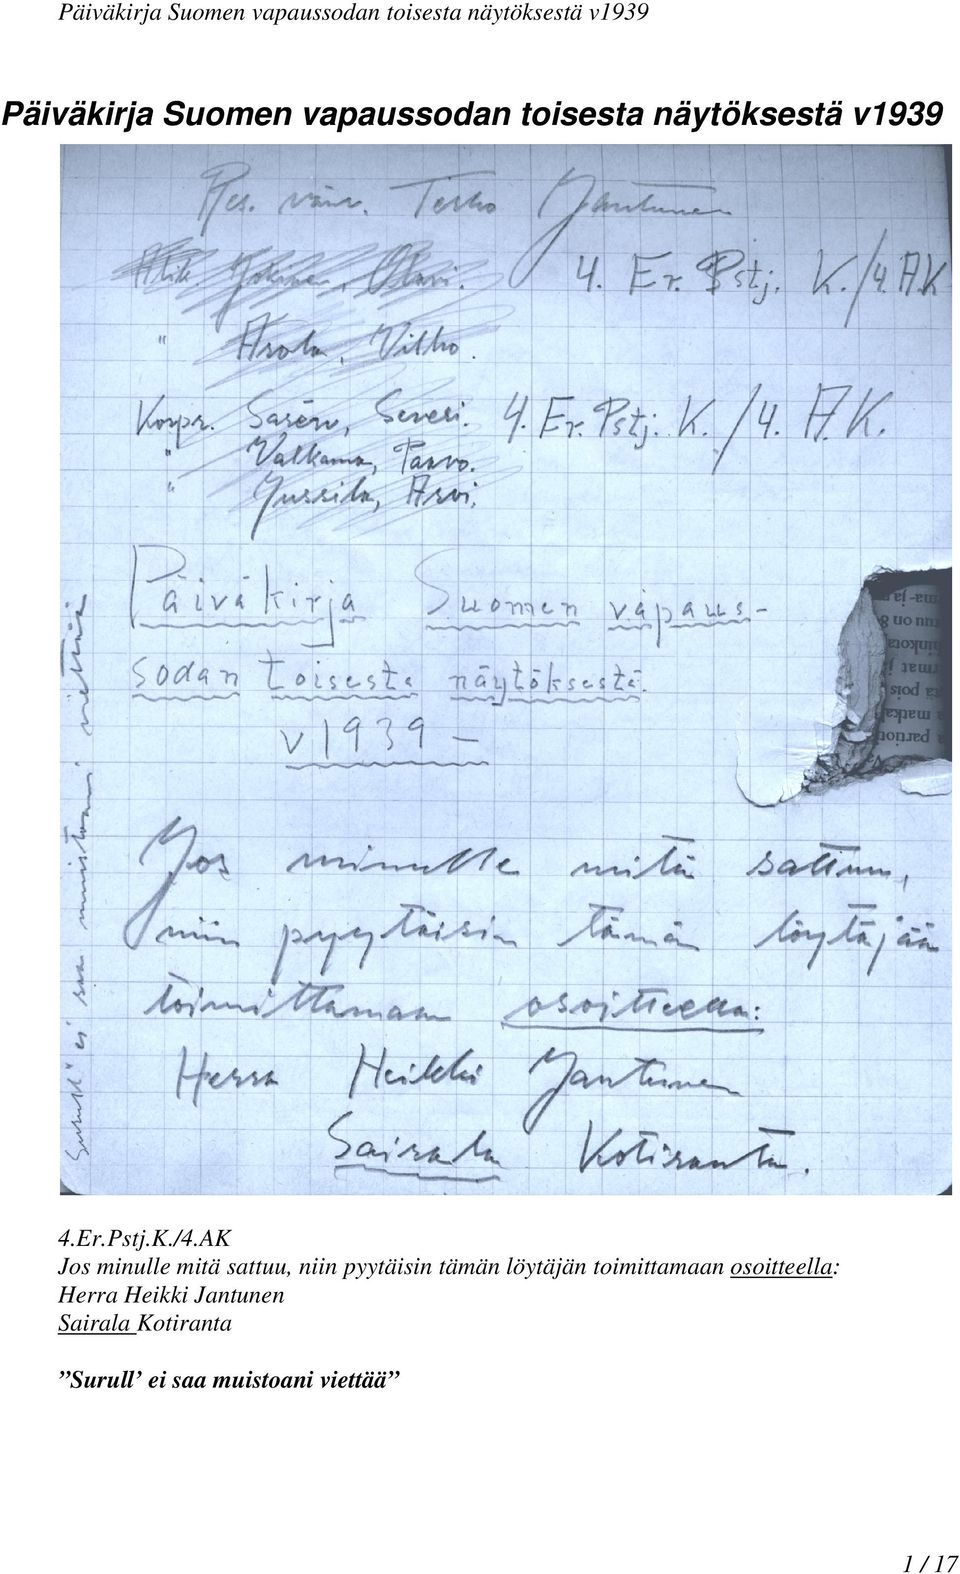 Päiväkirja Suomen vapaussodan toisesta näytöksestä v1939
Päiväkirja Suomen vapaussodan toisesta näytöksestä v1939
Res. vänr. Terho Jantunen
Alik. Jokinen, Olavi. 4. Er. Pstj. K./4. AK
" Arola, Vilho.
Korpr. Severi. 4. Er. Pstj. K./4. A.K.
" Valkama, Paavo.
" Jussila, Arvi.
Päiväkirja Suomen vapaus-
sodan toisesta näytöksestä.
v1939 –
Jos minulle mitä sattuu,
niin pyytäisin tämän löytäjään
toimittamaan osoitteella:
Herra Heikki Jantunen
Sairala Kotiranta.
Surull' ei saa muistoani viettää
4.Er.Pstj.K./4.AK
Jos minulle mitä sattuu, niin pyytäisin tämän löytäjän toimittamaan osoitteella:
Herra Heikki Jantunen
Sairala Kotiranta
”Surull’ ei saa muistoani viettää”
1 / 17